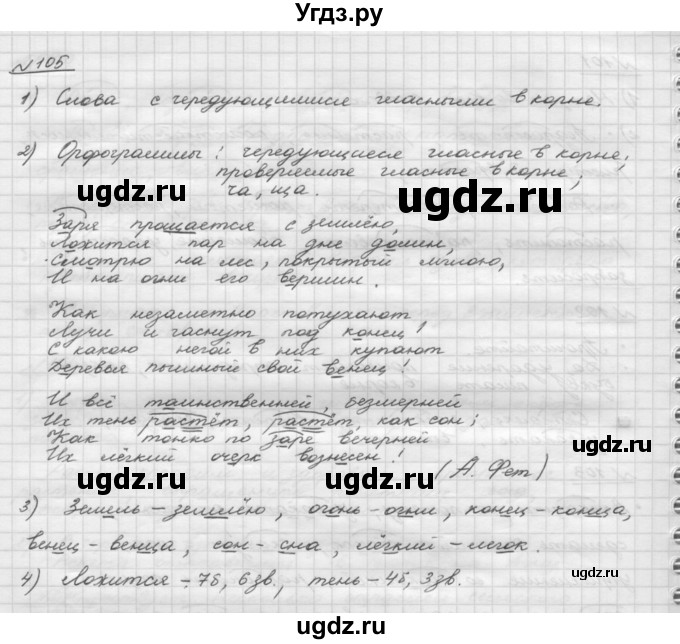 Угдз.ру
№105
1) Слова с чередующимися гласными в корне.
2) Орфограммы: чередующиеся гласные в корне;
проверяемые гласные в корне;
ча, ща.
Заря прощается с землёю,
Ложится пар на дне долин,
Смотрю на лес, покрытый мглою,
И на огни его вершин.
Как незаметно потухают
Лучи и гаснут под конец!
С какою негой в них купают
Деревья пышный свой венец!
И всё таинственней, безмерней
Их тень растёт, растёт, как сон;
Как тонко по заре вечерней
Их лёгкий очерк вознесен!
(А. Фет)
3) Земель – землёю, огонь – огни, конец – конца,
венец – венца, сон – сна, лёгкий – легок.
4) Ложится – 7б, 6зв., тень – 4б, 3зв.
ugdz.ru
ugdz.ru
ugdz.ru
ugdz.ru
ugdz.ru
ugdz.ru
ugdz.ru
ugdz.ru